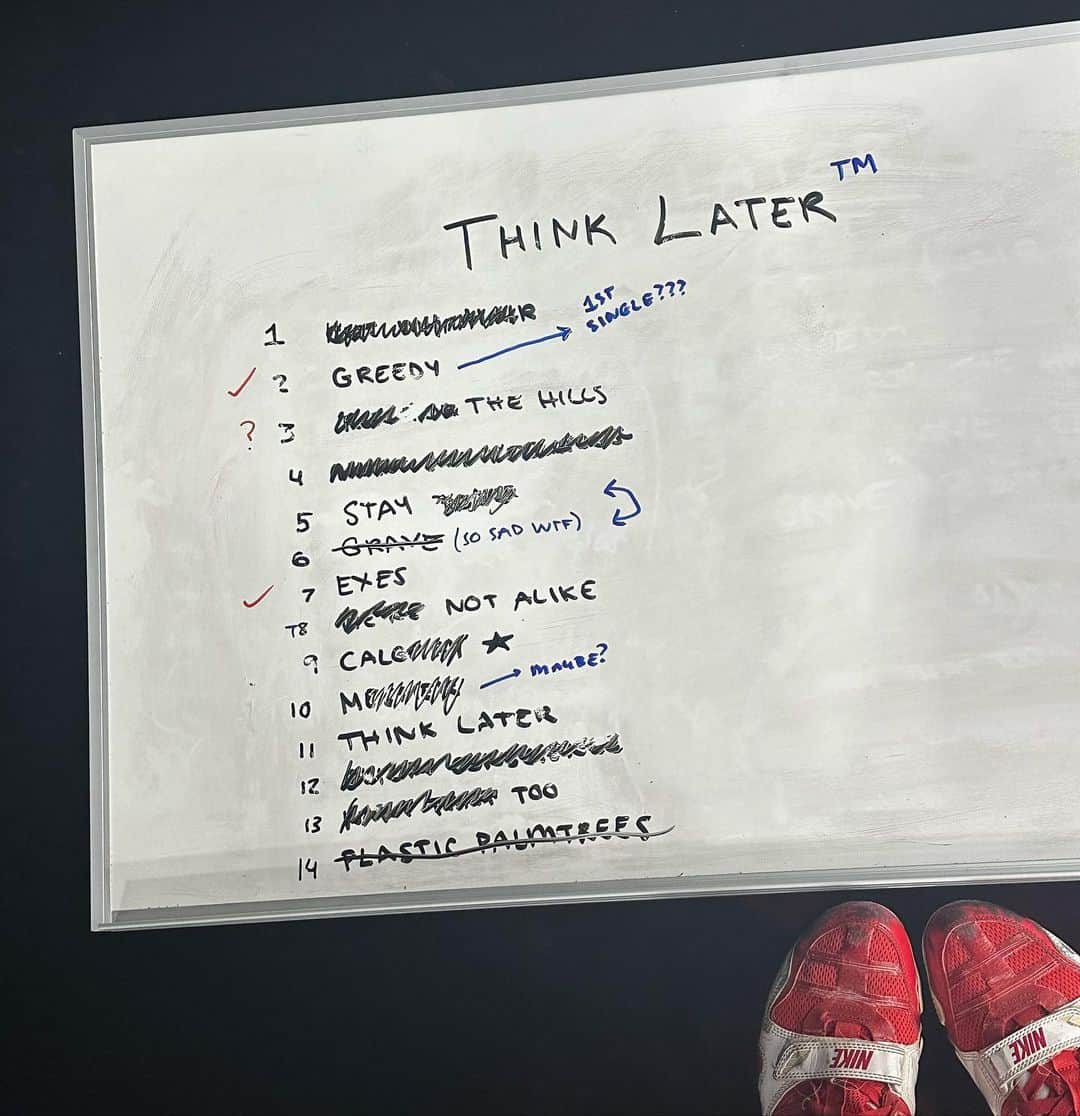 THINK LATER TM
1 R 1ST SINGLE???
2 GREEDY
? 3 THE HILLS
4
5 STAY
6 GRAVE (SO SAD WTF)
7 EXES
T8 WE'RE NOT ALIKE
9 CALC
10 M MAYBE?
11 THINK LATER
12
13 TOO
14 PLASTIC PALMTREES
NIKE
NIKE